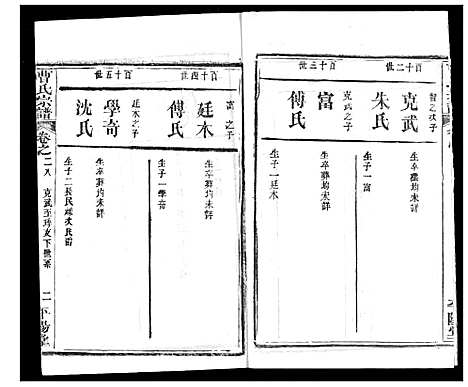 百十二世
智之次子
克武
生卒葬均未詳
朱氏
生子一富
百十三世
克武之子
富
生卒葬均未詳
傅氏
生子一廷木
百十四世
富之子
廷木
生卒葬均未詳
傅氏
生子一學奇
百十五世
廷木之子
學奇
生卒葬均未詳
沈氏
生子二長民
次民
曹氏宗譜
卷之二八
克武至
下世系
二
平陽堂